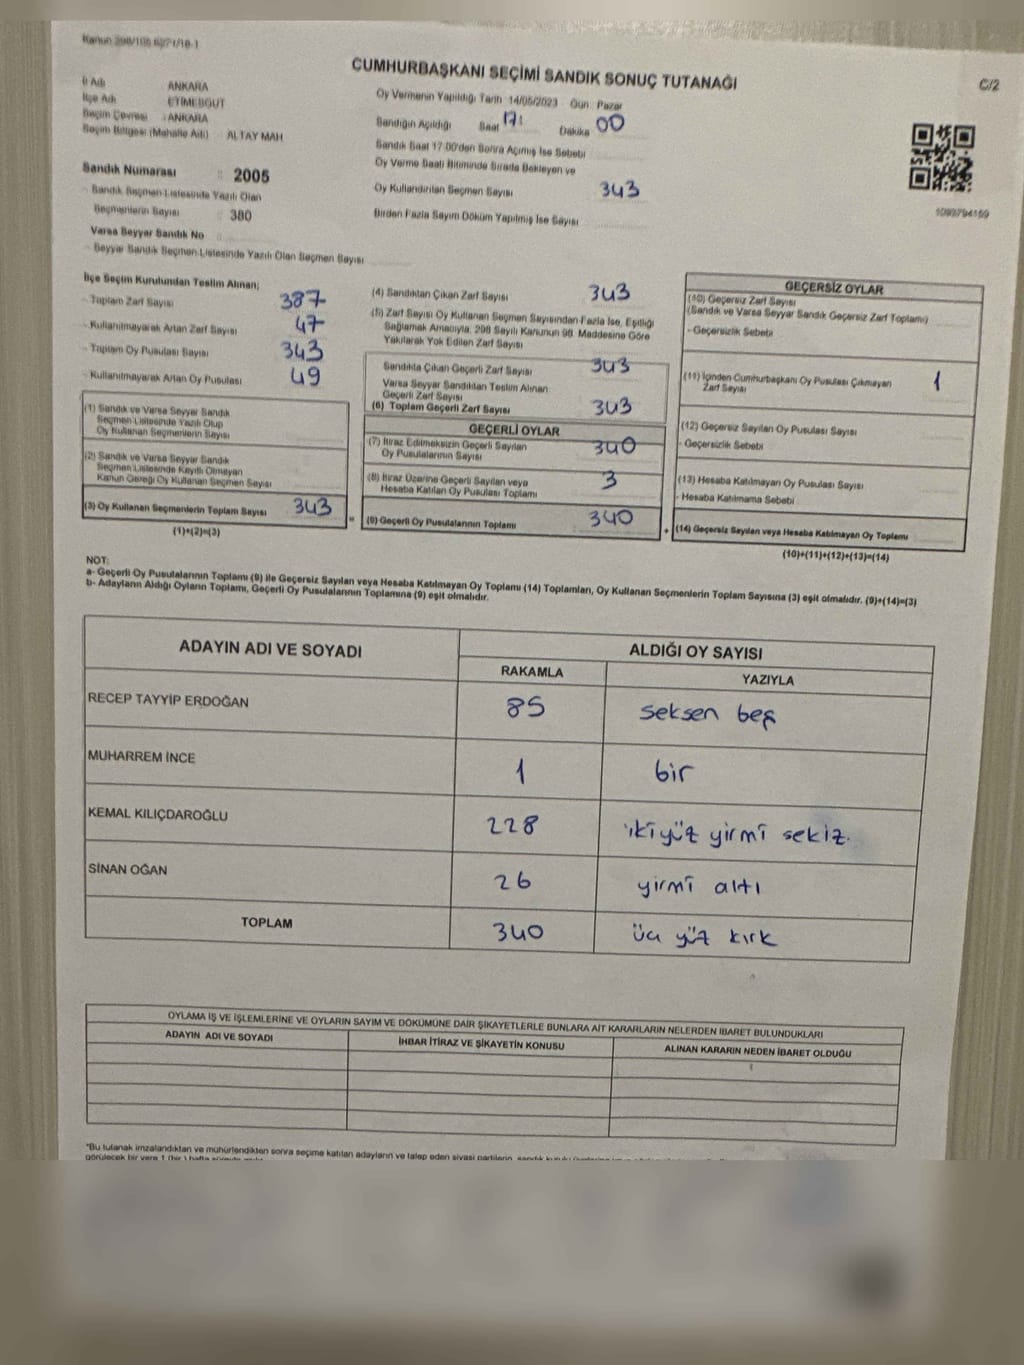 Kanun 298/105 6271/18-1
CUMHURBAŞKANI SEÇİMİ SANDIK SONUÇ TUTANAĞI
C/2
İl Adı ANKARA
İlçe Adı ETİMESGUT
Seçim Çevresi : ANKARA
Seçim Bölgesi (Mahalle Adı) : ALTAY MAH
Sandık Numarası : 2005
- Sandık Seçmen Listesinde Yazılı Olan
Seçmenlerin Sayısı : 380
Varsa Seyyar Sandık No
- Seyyar Sandık Seçmen Listesinde Yazılı Olan Seçmen Sayısı
Oy Vermenin Yapıldığı Tarih 14/05/2023 Gün Pazar
Sandığın Açıldığı Saat 17: Dakika 00
Sandık Saat 17:00'den Sonra Açılmış İse Sebebi
Oy Verme Saati Bitiminde Sırada Bekleyen ve
Oy Kullandırılan Seçmen Sayısı 343
Birden Fazla Sayım Döküm Yapılmış İse Sayısı
İlçe Seçim Kurulundan Teslim Alınan;
- Toplam Zarf Sayısı 387
- Kullanılmayarak Artan Zarf Sayısı 47
- Toplam Oy Pusulası Sayısı 343
- Kullanılmayarak Artan Oy Pusulası 49
(1) Sandık ve Varsa Seyyar Sandık
Seçmen Listesinde Yazılı Olup
Oy Kullanan Seçmenlerin Sayısı
(2) Sandık ve Varsa Seyyar Sandık
Seçmen Listesinde Kayıtlı Olmayan
Kanun Gereği Oy Kullanan Seçmen Sayısı
(3) Oy Kullanan Seçmenlerin Toplam Sayısı 343
(1)+(2)=(3)
=
(4) Sandıktan Çıkan Zarf Sayısı 343
(5) Zarf Sayısı Oy Kullanan Seçmen Sayısından Fazla İse, Eşitliği
Sağlamak Amacıyla, 298 Sayılı Kanunun 98. Maddesine Göre
Yakılarak Yok Edilen Zarf Sayısı
Sandıkta Çıkan Geçerli Zarf Sayısı 343
Varsa Seyyar Sandıktan Teslim Alınan
Geçerli Zarf Sayısı
(6) Toplam Geçerli Zarf Sayısı 343
GEÇERLİ OYLAR
(7) İtiraz Edilmeksizin Geçerli Sayılan
Oy Pusulalarının Sayısı 340
(8) İtiraz Üzerine Geçerli Sayılan veya
Hesaba Katılan Oy Pusulası Toplamı 3
(9) Geçerli Oy Pusulalarının Toplamı 340
+
1093794159
GEÇERSİZ OYLAR
(10) Geçersiz Zarf Sayısı
(Sandık ve Varsa Seyyar Sandık Geçersiz Zarf Toplamı)
- Geçersizlik Sebebi
(11) İçinden Cumhurbaşkanı Oy Pusulası Çıkmayan
Zarf Sayısı 1
(12) Geçersiz Sayılan Oy Pusulası Sayısı
- Geçersizlik Sebebi
(13) Hesaba Katılmayan Oy Pusulası Sayısı
- Hesaba Katılmama Sebebi
(14) Geçersiz Sayılan veya Hesaba Katılmayan Oy Toplamı
(10)+(11)+(12)+(13)=(14)
NOT:
a- Geçerli Oy Pusulalarının Toplamı (9) ile Geçersiz Sayılan veya Hesaba Katılmayan Oy Toplamı (14) Toplamları, Oy Kullanan Seçmenlerin Toplam Sayısına (3) eşit olmalıdır. (9)+(14)=(3)
b- Adayların Aldığı Oyların Toplamı, Geçerli Oy Pusulalarının Toplamına (9) eşit olmalıdır.
ADAYIN ADI VE SOYADI
ALDIĞI OY SAYISI
RAKAMLA YAZIYLA
RECEP TAYYİP ERDOĞAN 85 seksen beş
MUHARREM İNCE 1 bir
KEMAL KILIÇDAROĞLU 228 ikiyüz yirmi sekiz.
SİNAN OĞAN 26 yirmi altı
TOPLAM 340 üç yüz kırk
OYLAMA İŞ VE İŞLEMLERİNE VE OYLARIN SAYIM VE DÖKÜMÜNE DAİR ŞİKAYETLERLE BUNLARA AİT KARARLARIN NELERDEN İBARET BULUNDUKLARI
ADAYIN ADI VE SOYADI İHBAR İTİRAZ VE ŞİKAYETİN KONUSU ALINAN KARARIN NEDEN İBARET OLDUĞU
"Bu tutanak imzalandıktan ve mühürlendikten sonra seçime katılan adayların ve talep eden siyasi partilerin,